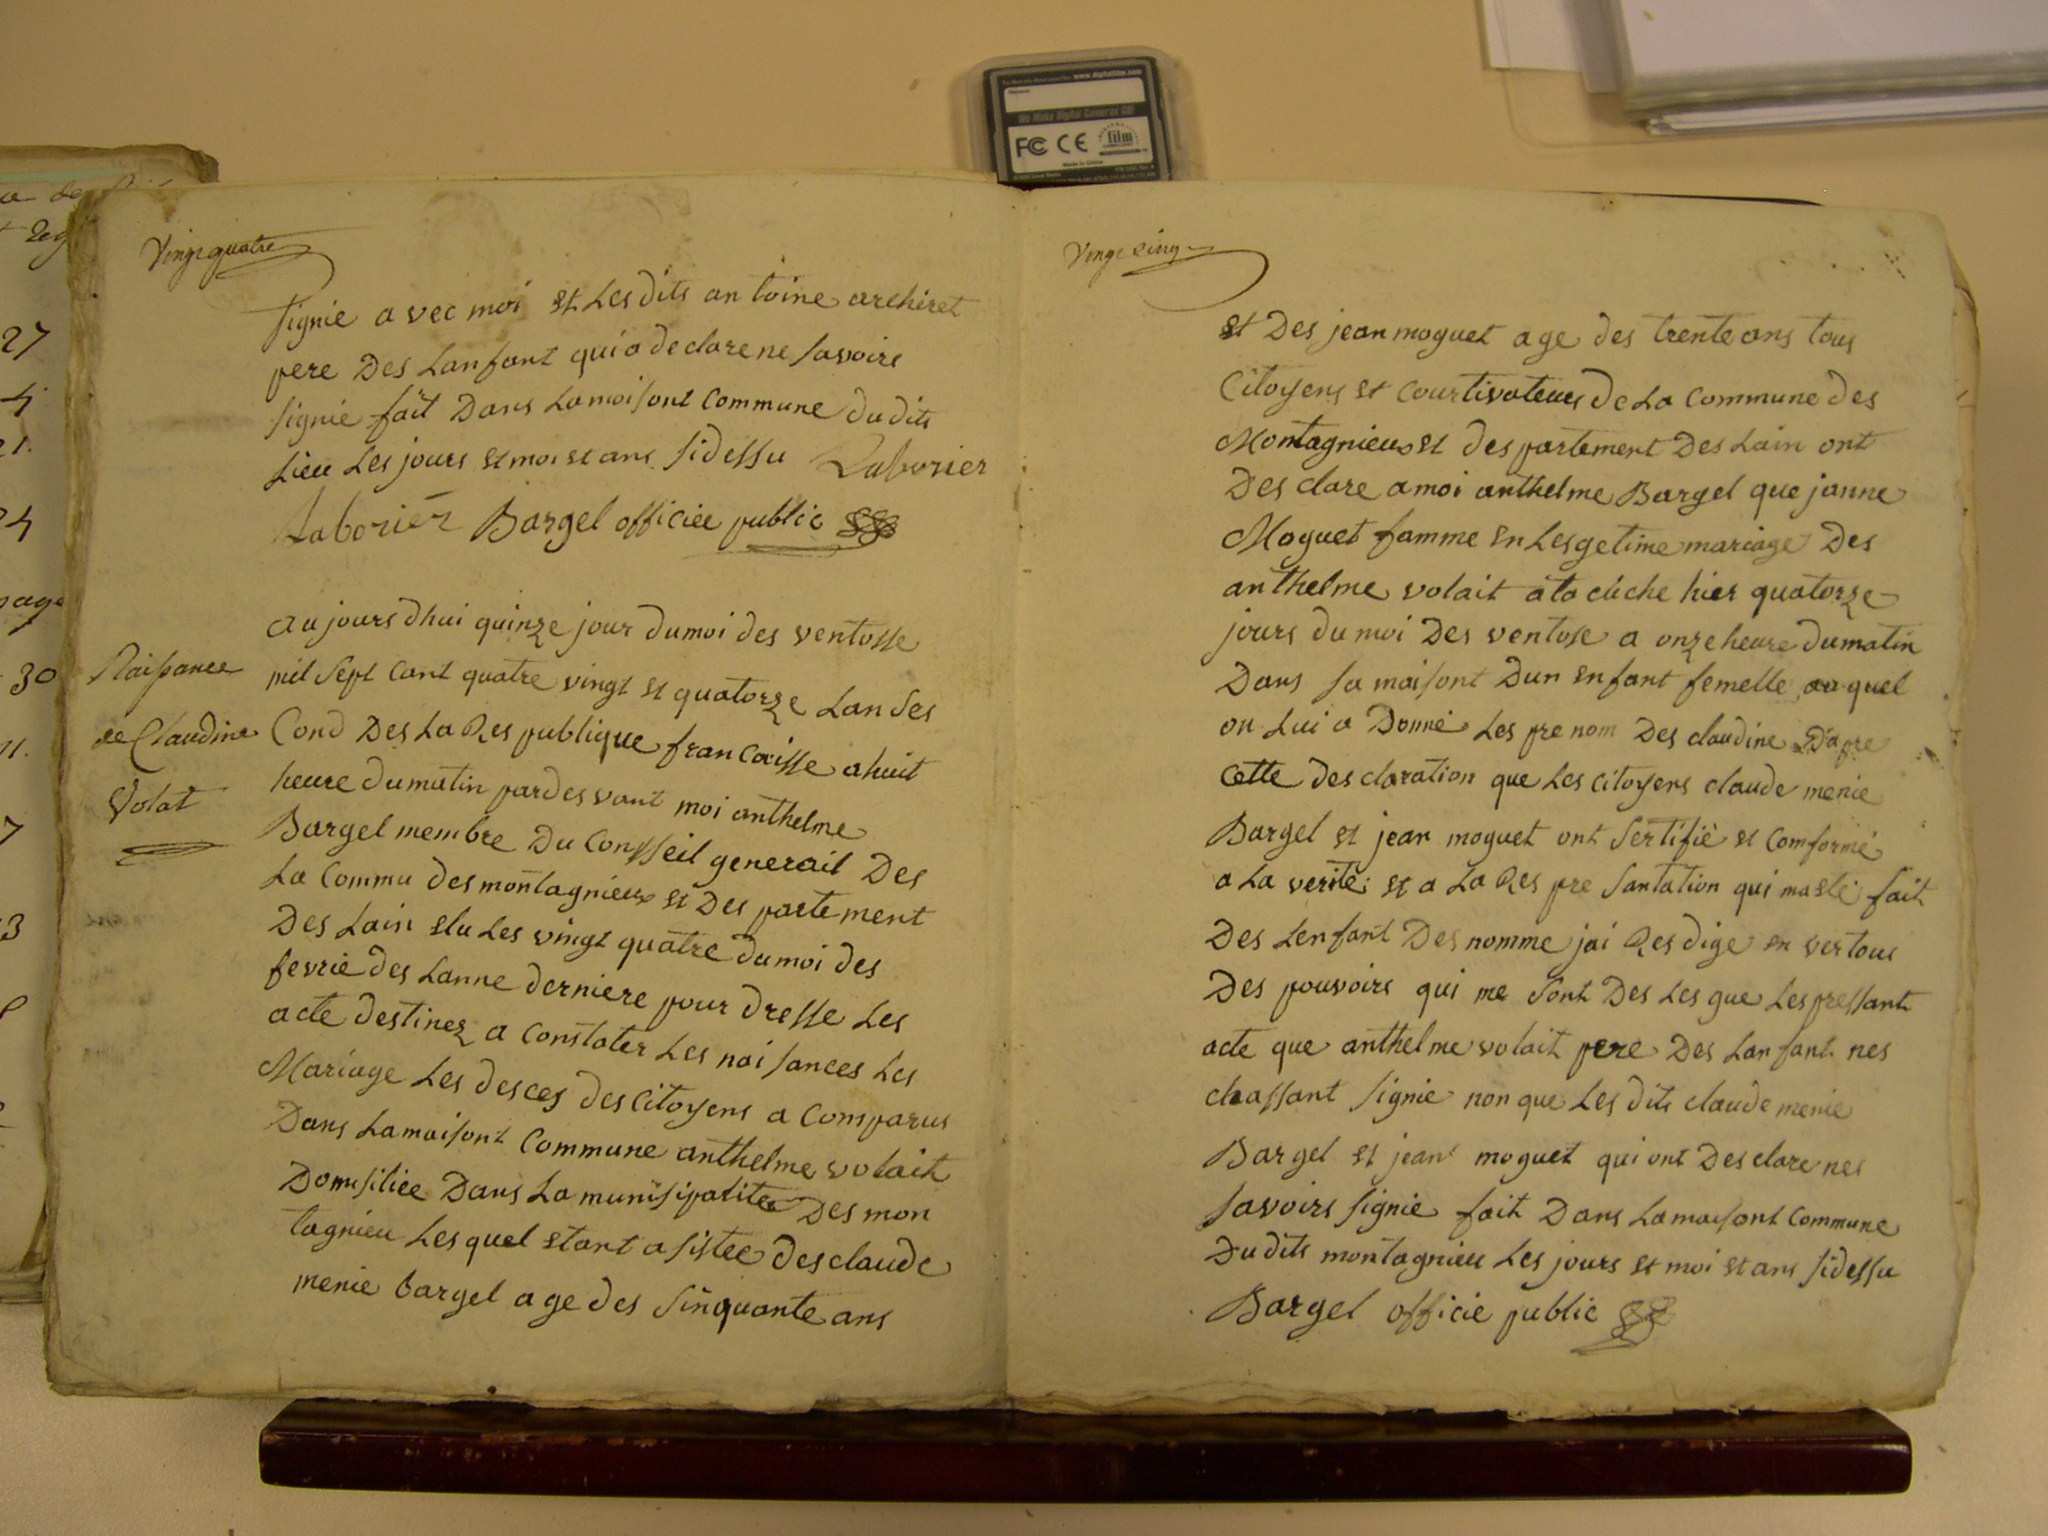 Vingt quatre
signie avec moi et Les dits antoine archiret
pere Des Lanfant qui a declare ne savoire
signie fait Dans La maisont Commune dudits
Lieu Les jours et moi et ans sidessu Laborier
Laborier Bargel officiée public
Naissance
de Claudine
Volat
aujours dhui quinze jour dumoi des ventosse
mil sept cant quatre vingt et quatorze Lan ses
Cond Des La Respublique francoisse a huit
heure dumatin pardesvant moi anthelme
Bargel membre Du Consseil generail Des
La Commu des montagnieux et Des partement
Des Lain elu Les vingt quatre dumoi des
fevrie des Lanne derniere pour dresse Les
acte destinez a Constater Les naissances Les
Mariage Les desces des Citoyens a Comparus
Dans Lamaisont Commune anthelme volait
Domisiliée Dans La munisipalitee Des mon
tagnieu Les quel etant asistee des claude
menie bargel age des sinquante ans
Vingt cinq
et Des jean moguet age des trente ans tous
Citoyens et Courtivateurs de La Commune des
Montagnieux et des partement Des Lain ont
Des clare a moi anthelme Bargel que janne
Moguet famme en Lesgetime mariage Des
anthelme volait a hier quatorze
jours du moi Des ventose a onze heure dumatin
Dans sa maisont Dun enfant femelle auquel
on Lui a Donné Les prenom Des claudine D'apre
Cette desclaration que Les Citoyens claude menie
Bargel et jean moguet ont sertifié et Comformé
a La verité et a La Respresantation qui ma eté fait
Des Lenfant Des nomme jai Resdige en vertous
Des pouvoirs qui me sont Des Les gue Les pressant
acte que anthelme volait pere Des Lanfant nes
chassant signie non que Les dits claude menie
Bargel et jean moguet qui ont Des clare nes
savoirs signie fait Dans Lamaisont Commune
Dudits montagnieu Les jours et moi et ans sidessu
Bargel officie public
27
21.
24
30
www.digitalfilm.com
We Make Digital Cameras GO!
FC CE film
Made in China